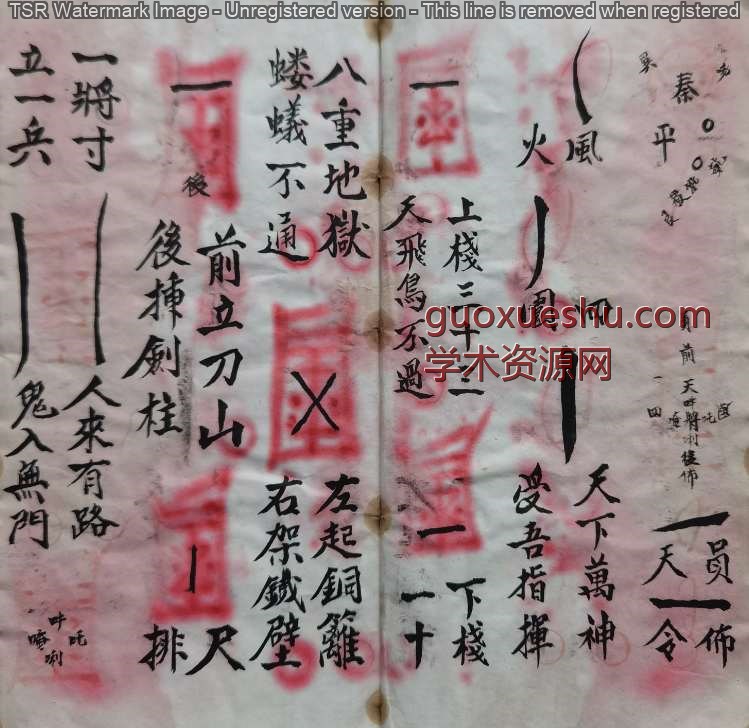 TSR Watermark Image - Unregistered version - This line is removed when registered
秦
平
前
天吽將唎後佈
員佈
天令
風
火
天下萬神
受吾指揮
上棧三十三
天飛鳥不過
下棧
一十
八重地獄
螻蟻不通
左起銅籬
右架鐵壁
後
前立刀山
後揷劍柱
尺
排
一將寸
立一兵
人來有路
鬼入無門
吽吒
唵唎
guoxueshu.com
学术资源网